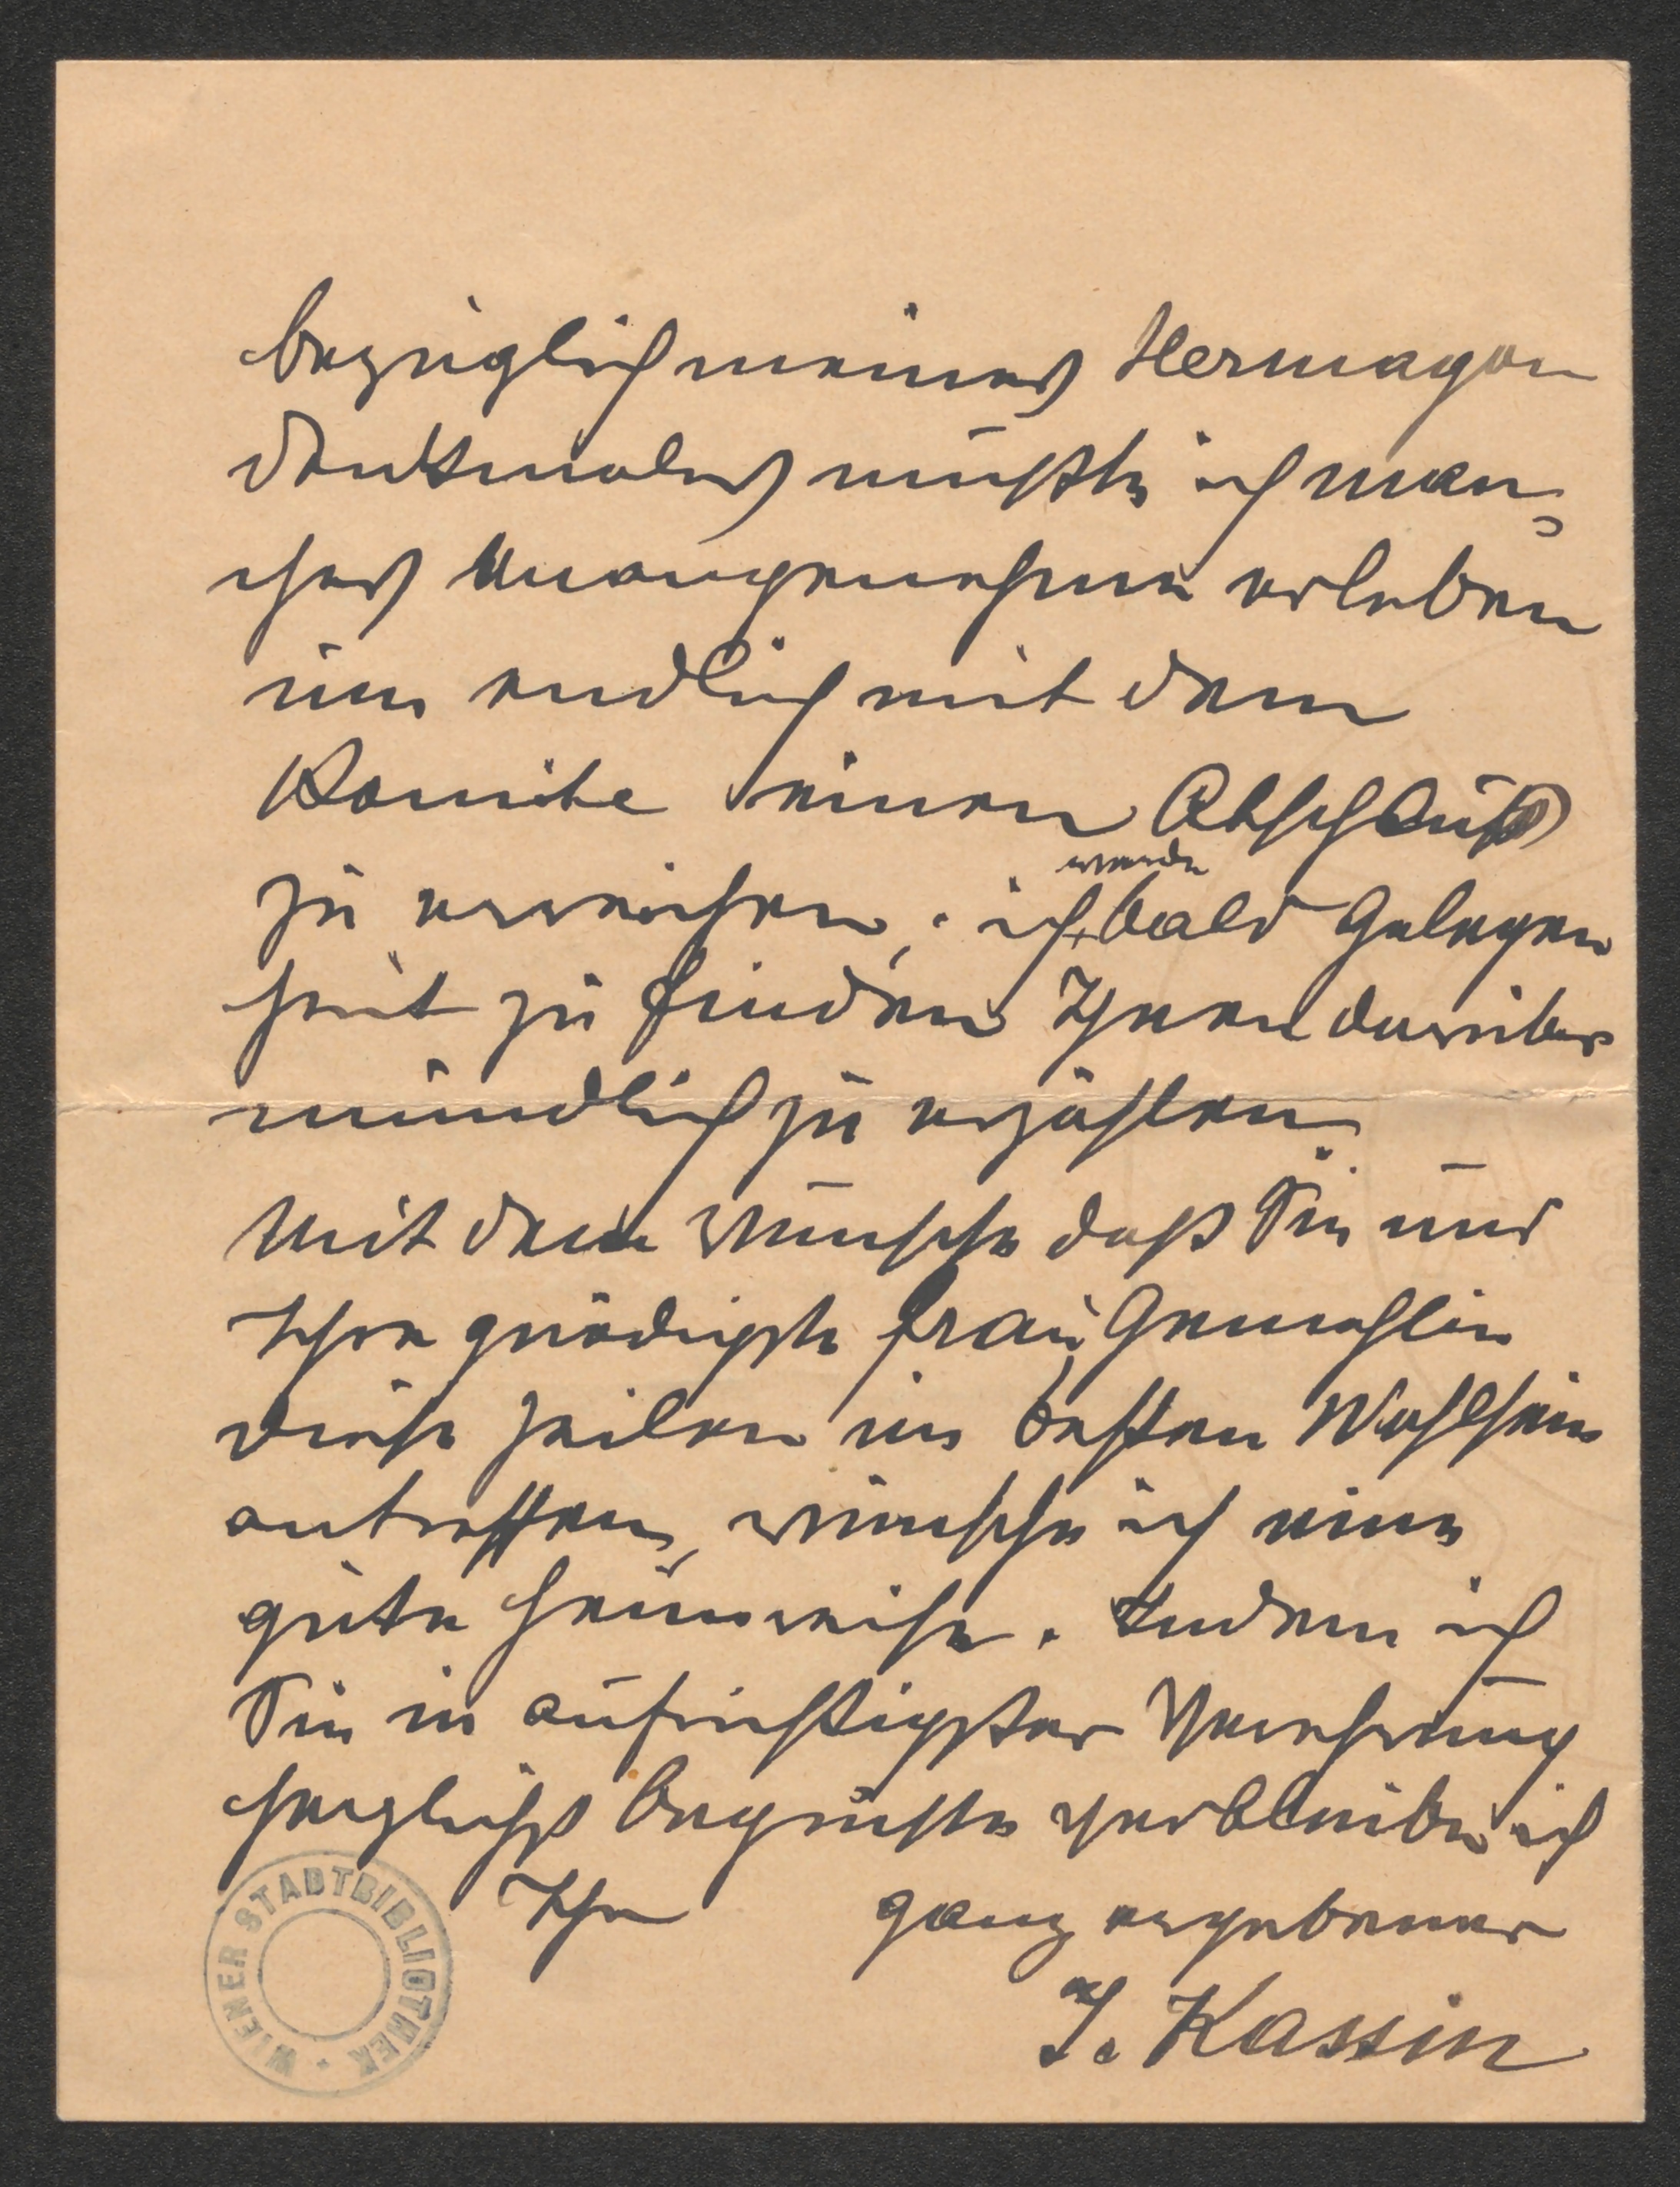 bezüglich meines Hermagor
Denkmales mußte ich man-
ches Unangenehme erleben
um endlich mit dem
Komite einen Abschluß
zu erreichen, ich werde bald Gelegen
heit zu finden Ihnen darüber
mündlich zu erzählen.
Mit dem Wunsche daß Sie und
Ihre gnädigste Frau Gemahlin
diese Zeilen im besten Wohlsein
antreffen, wünsche ich eine
gute Heimreise. Indem ich
Sie in aufrichtigster Verehrung
herzlichst begrüße verbleibe ich
Ihr ganz ergebener
J. Kassin
WIENER STADTBIBLIOTHEK